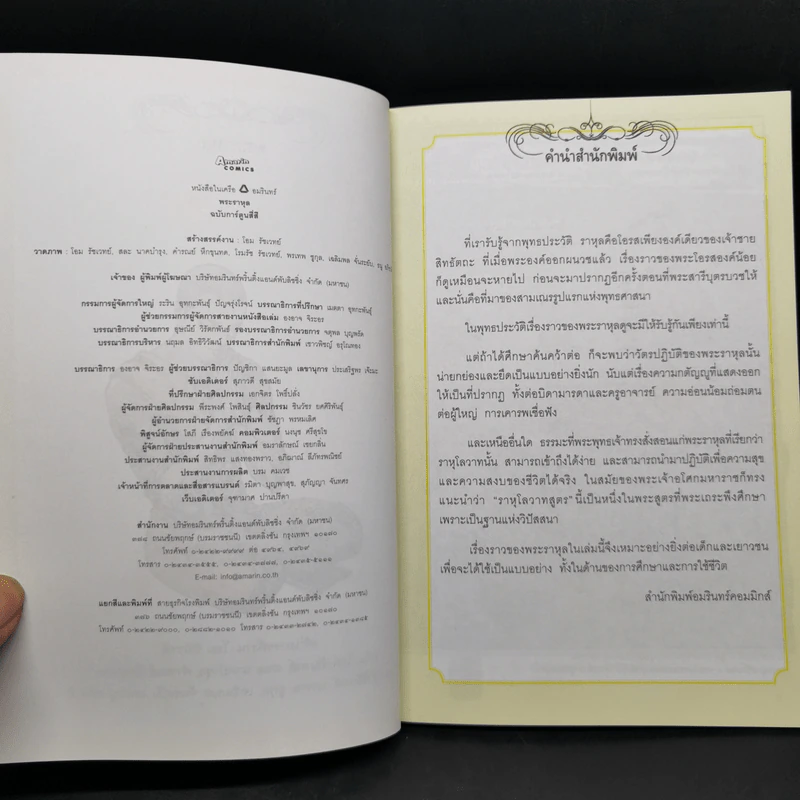 Amarin
COMICS
หนังสือในเครือ อมรินทร์
พระราหุล
ฉบับการ์ตูนสี่สี
สร้างสรรค์งาน : โอม รัชเวทย์
วาดภาพ : โอม รัชเวทย์, สละ นาคบำรุง, คำรณย์ ทึกขุนทด, โรมรัช รัชเวทย์, พรเทพ ชูกุล, เฉลิมพล
เจ้าของ ผู้พิมพ์ผู้โฆษณา บริษัทอมรินทร์พริ้นติ้งแอนด์พับลิชชิ่ง จำกัด (มหาชน)
กรรมการผู้จัดการใหญ่ ระริน อุทกะพันธุ์ ปัญจรุ่งโรจน์ บรรณาธิการที่ปรึกษา เมตตา อุทกะพันธุ์
ผู้ช่วยกรรมการผู้จัดการสายงานหนังสือเล่ม องอาจ จิระอร
บรรณาธิการอำนวยการ อุษณีย์ วิรัตกพันธ์ รองบรรณาธิการอำนวยการ จตุพล บุญพรัด
บรรณาธิการบริหาร นฤมล อิทธิวิวัฒน์ บรรณาธิการสำนักพิมพ์ เชาวพิชญ์ อรุโณทอง
บรรณาธิการ องอาจ จิระอร ผู้ช่วยบรรณาธิการ ปัญชิกา แสนยะมูล เลขานุการ ประเสริฐพร
ซับเอดิเตอร์ สุภาวดี สุขสมัย
ที่ปรึกษาฝ่ายศิลปกรรม เอกจิตร โพธิ์ปลั่ง
ผู้จัดการฝ่ายศิลปกรรม พีระพงศ์ โพสินธุ์ ศิลปกรรม ชินวัชร ยศศิริพันธุ์
ผู้อำนวยการฝ่ายการจัดการสำนักพิมพ์ ชัชฎา พรหมเลิศ
พิสูจน์อักษร โสภี เรืองพยัคฆ์ คอมพิวเตอร์ นงนุช ศรีสุขโข
ผู้จัดการฝ่ายประสานงานสำนักพิมพ์ อมราลักษณ์ เชยกลิ่น
ประสานงานสำนักพิมพ์ สิทธิพร แสงทองพราว, อภิมาณี ลีภัทรพณิชย์
ประสานงานการผลิต บรม คมเวช
เจ้าหน้าที่การตลาดและสื่อสารแบรนด์ รมิดา บุญพาสุข, สุภัญญา จันทศร
เว็บเอดิเตอร์ จุฑามาศ ปานปรีดา
สำนักงาน บริษัทอมรินทร์พริ้นติ้งแอนด์พับลิชชิ่ง จำกัด (มหาชน)
๓๗๘ ถนนชัยพฤกษ์ (บรมราชชนนี) เขตตลิ่งชัน กรุงเทพฯ ๑๐๑๗๐
โทรศัพท์ ๐-๒๔๒๒-๙๙๙๙ ต่อ ๔๙๖๔, ๔๙๖๙
โทรสาร ๐-๒๔๓๔-๓๕๕๕, ๐-๒๔๓๔-๓๗๗๗, ๐-๒๔๓๕-๕๑๑๑
E-mail: info@amarin.co.th
แยกสีและพิมพ์ที่ สายธุรกิจโรงพิมพ์ บริษัทอมรินทร์พริ้นติ้งแอนด์พับลิชชิ่ง จำกัด (มหาชน)
๓๗๖ ถนนชัยพฤกษ์ (บรมราชชนนี) เขตตลิ่งชัน กรุงเทพฯ ๑๐๑๗๐
โทรศัพท์ ๐-๒๔๒๒-๙๐๐๐, ๐-๒๘๘๒-๑๐๑๐ โทรสาร ๐-๒๔๓๓-๒๗๔๒, ๐-๒๔๓๔-๑๓๘๕
คำนำสำนักพิมพ์
ที่เรารับรู้จากพุทธประวัติ ราหุลคือโอรสเพียงองค์เดียวของเจ้าชาย
สิทธัตถะ ที่เมื่อพระองค์ออกผนวชแล้ว เรื่องราวของพระโอรสองค์น้อย
ก็ดูเหมือนจะหายไป ก่อนจะมาปรากฏอีกครั้งตอนที่พระสารีบุตรบวชให้
และนั่นคือที่มาของสามเณรรูปแรกแห่งพุทธศาสนา
ในพุทธประวัติเรื่องราวของพระราหุลดูจะมีให้รับรู้กันเพียงเท่านี้
แต่ถ้าได้ศึกษาค้นคว้าต่อ ก็จะพบว่าวัตรปฏิบัติของพระราหุลนั้น
น่ายกย่องและยึดเป็นแบบอย่างยิ่งนัก นับแต่เรื่องความกตัญญูที่แสดงออก
ให้เป็นที่ปรากฏ ทั้งต่อบิดามารดาและครูอาจารย์ ความอ่อนน้อมถ่อมตน
ต่อผู้ใหญ่ การเคารพเชื่อฟัง
และเหนืออื่นใด ธรรมะที่พระพุทธเจ้าทรงสั่งสอนแก่พระราหุลที่เรียกว่า
ราหุโลวาทนั้น สามารถเข้าถึงได้ง่าย และสามารถนำมาปฏิบัติเพื่อความสุข
และความสงบของชีวิตได้จริง ในสมัยของพระเจ้าอโศกมหาราชก็ทรง
แนะนำว่า "ราหุโลวาทสูตร" นี้เป็นหนึ่งในพระสูตรที่พระเถระพึงศึกษา
เพราะเป็นฐานแห่งวิปัสสนา
เรื่องราวของพระราหุลในเล่มนี้จึงเหมาะอย่างยิ่งต่อเด็กและเยาวชน
เพื่อจะได้ใช้เป็นแบบอย่าง ทั้งในด้านของการศึกษาและการใช้ชีวิต
สำนักพิมพ์อมรินทร์คอมมิกส์